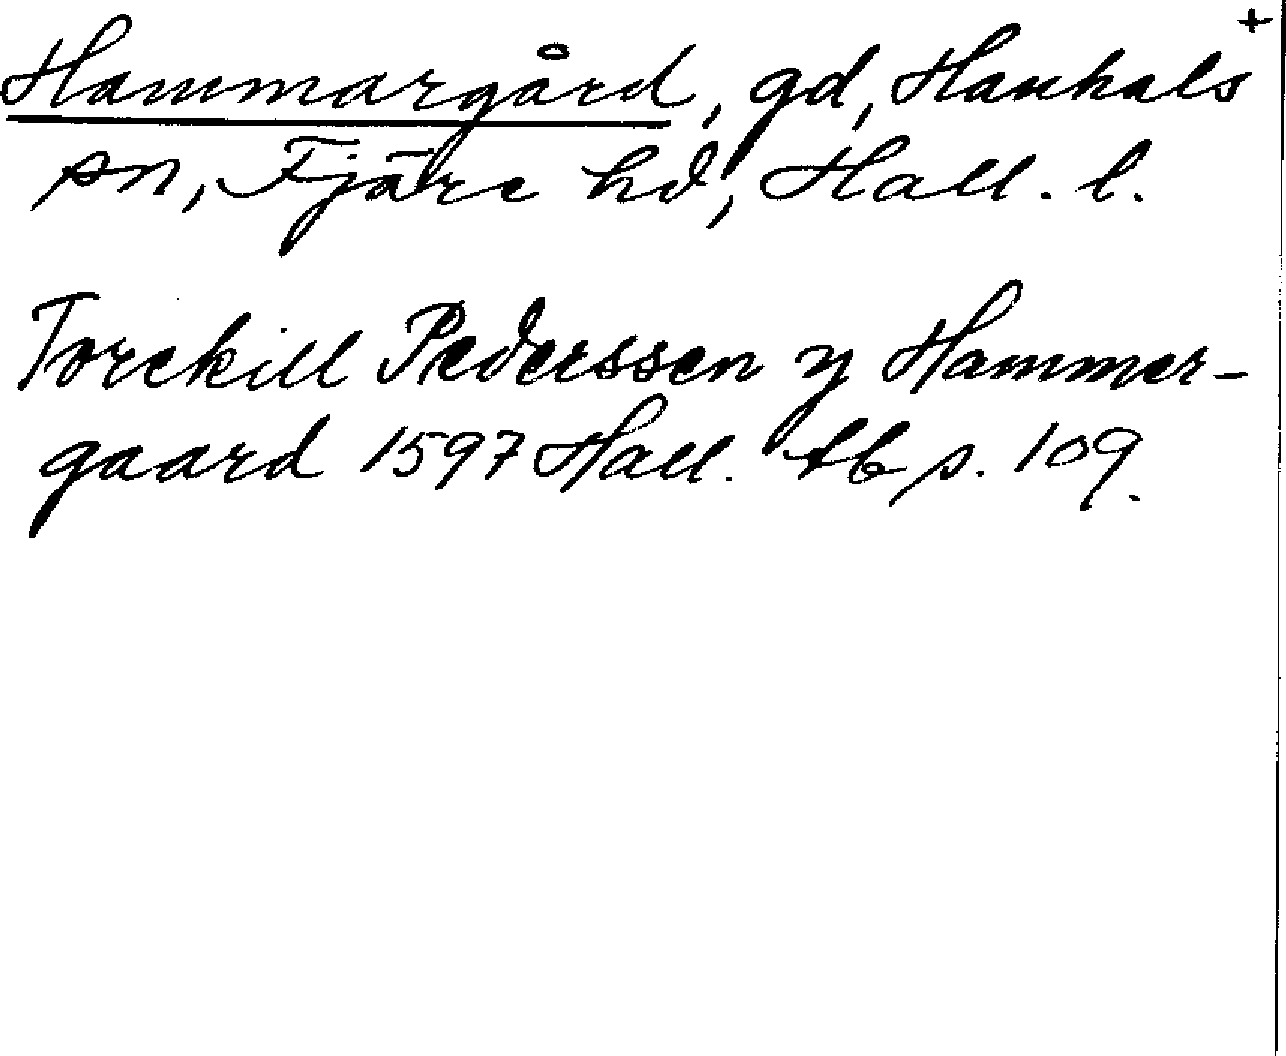 +
Hammargård, gd, Hanhals
sn, Fjäre hd, Hall. l.
Torekill Pederssen y Hammer-
gaard 1597 Hall. tb s. 109.